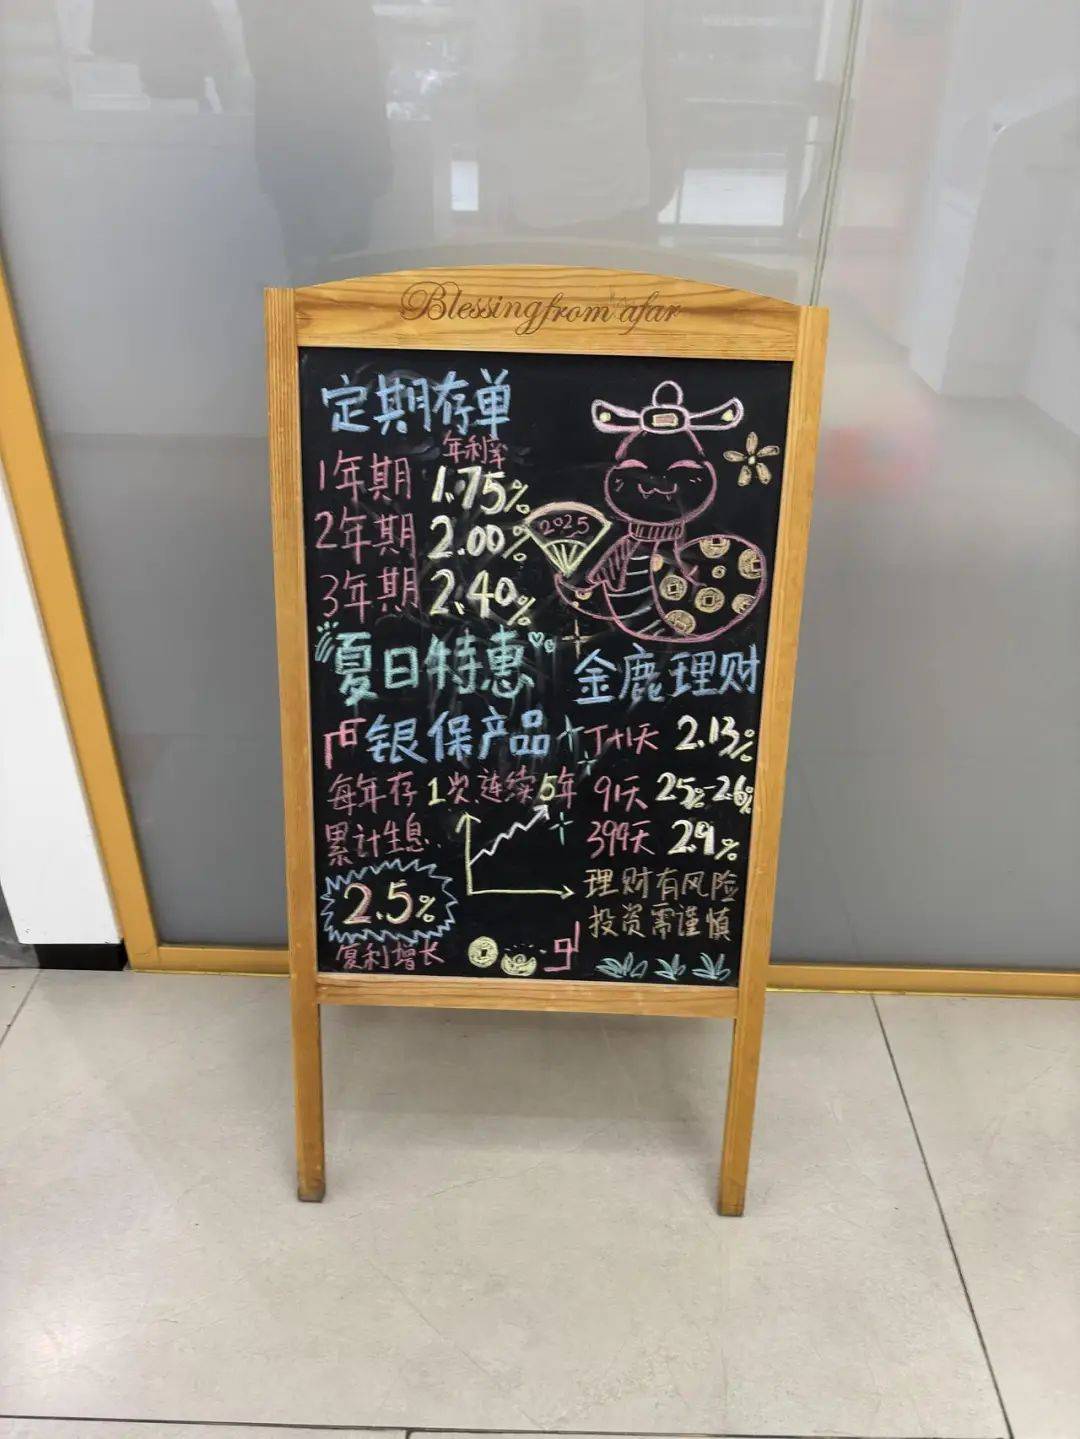 Blessing from afar
定期存单
年利率
1年期 1.75%
2年期 2.00%
3年期 2.40%
2025
夏日特惠
银保产品
每年存1次连续5年
累计生息
2.5%
复利增长
金鹿理财
T+1天 2.13%
91天 2.5%-2.6%
399天 2.9%
理财有风险
投资需谨慎